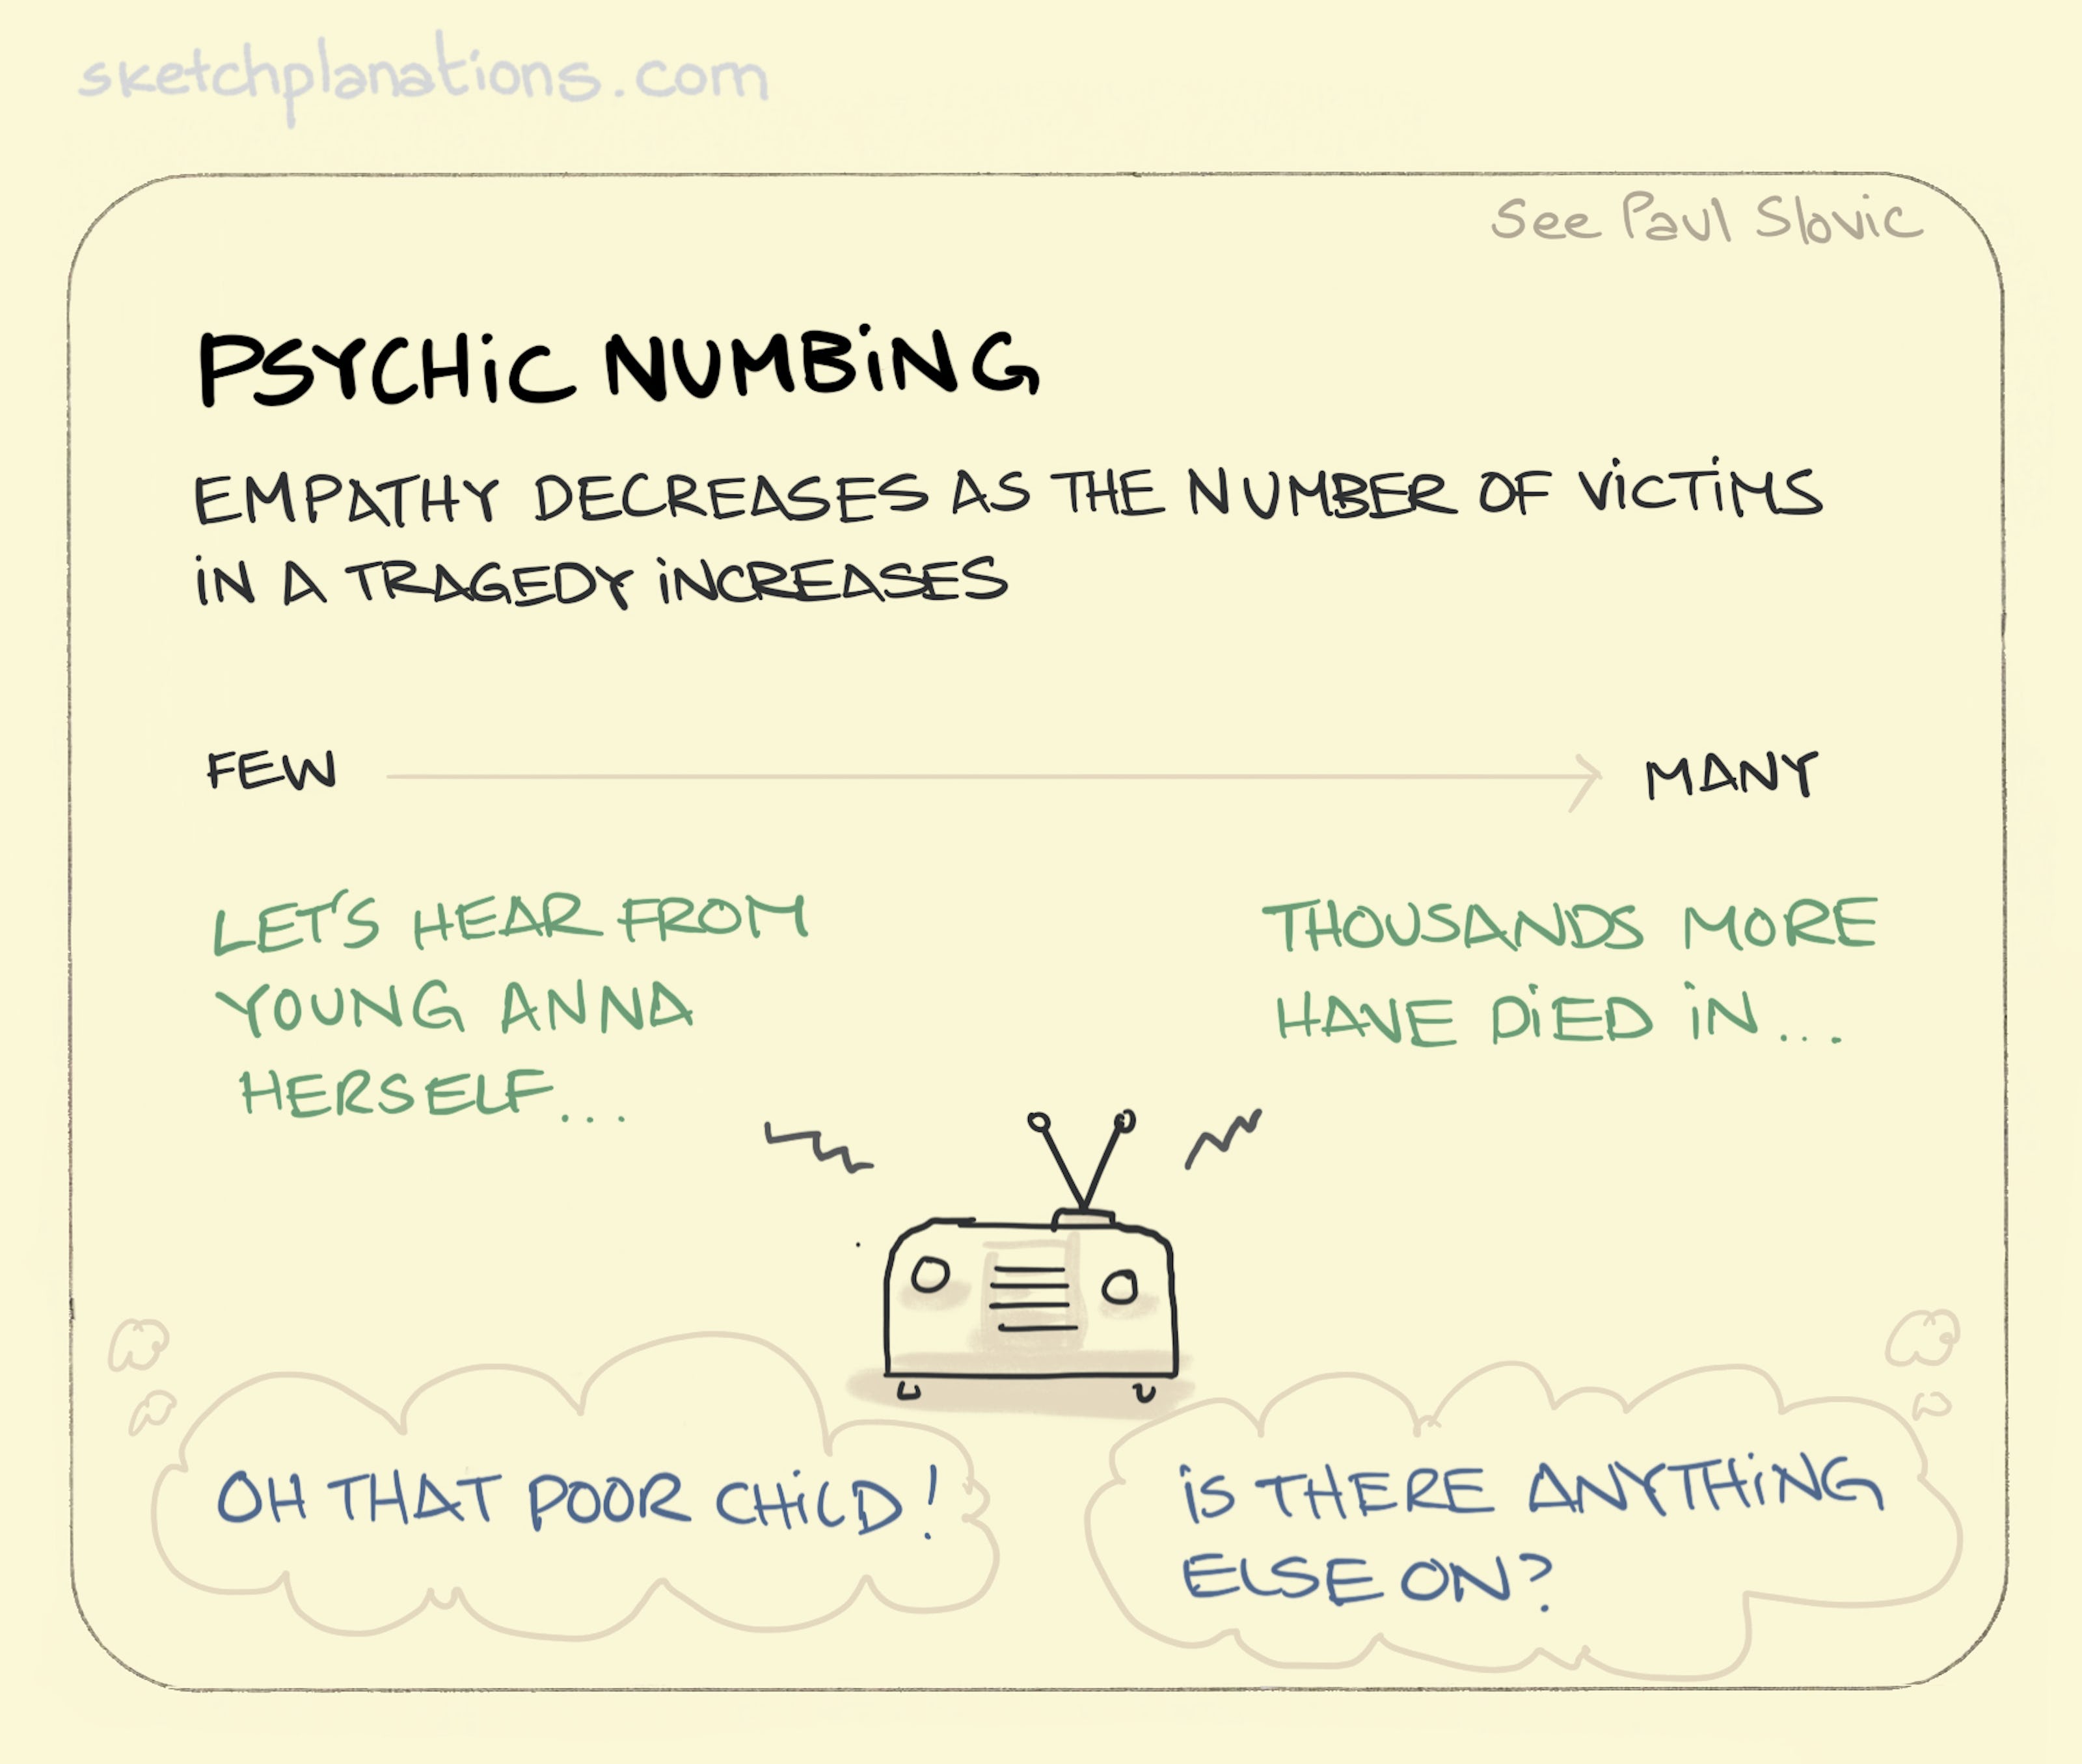 sketchplanations.com
See Paul Slovic
PSYCHIC NUMBING
EMPATHY DECREASES AS THE NUMBER OF VICTIMS
IN A TRAGEDY INCREASES
FEW
MANY
LET'S HEAR FROM
YOUNG ANNA
HERSELF...
THOUSANDS MORE
HAVE DIED IN...
OH THAT POOR CHILD!
IS THERE ANYTHING
ELSE ON?